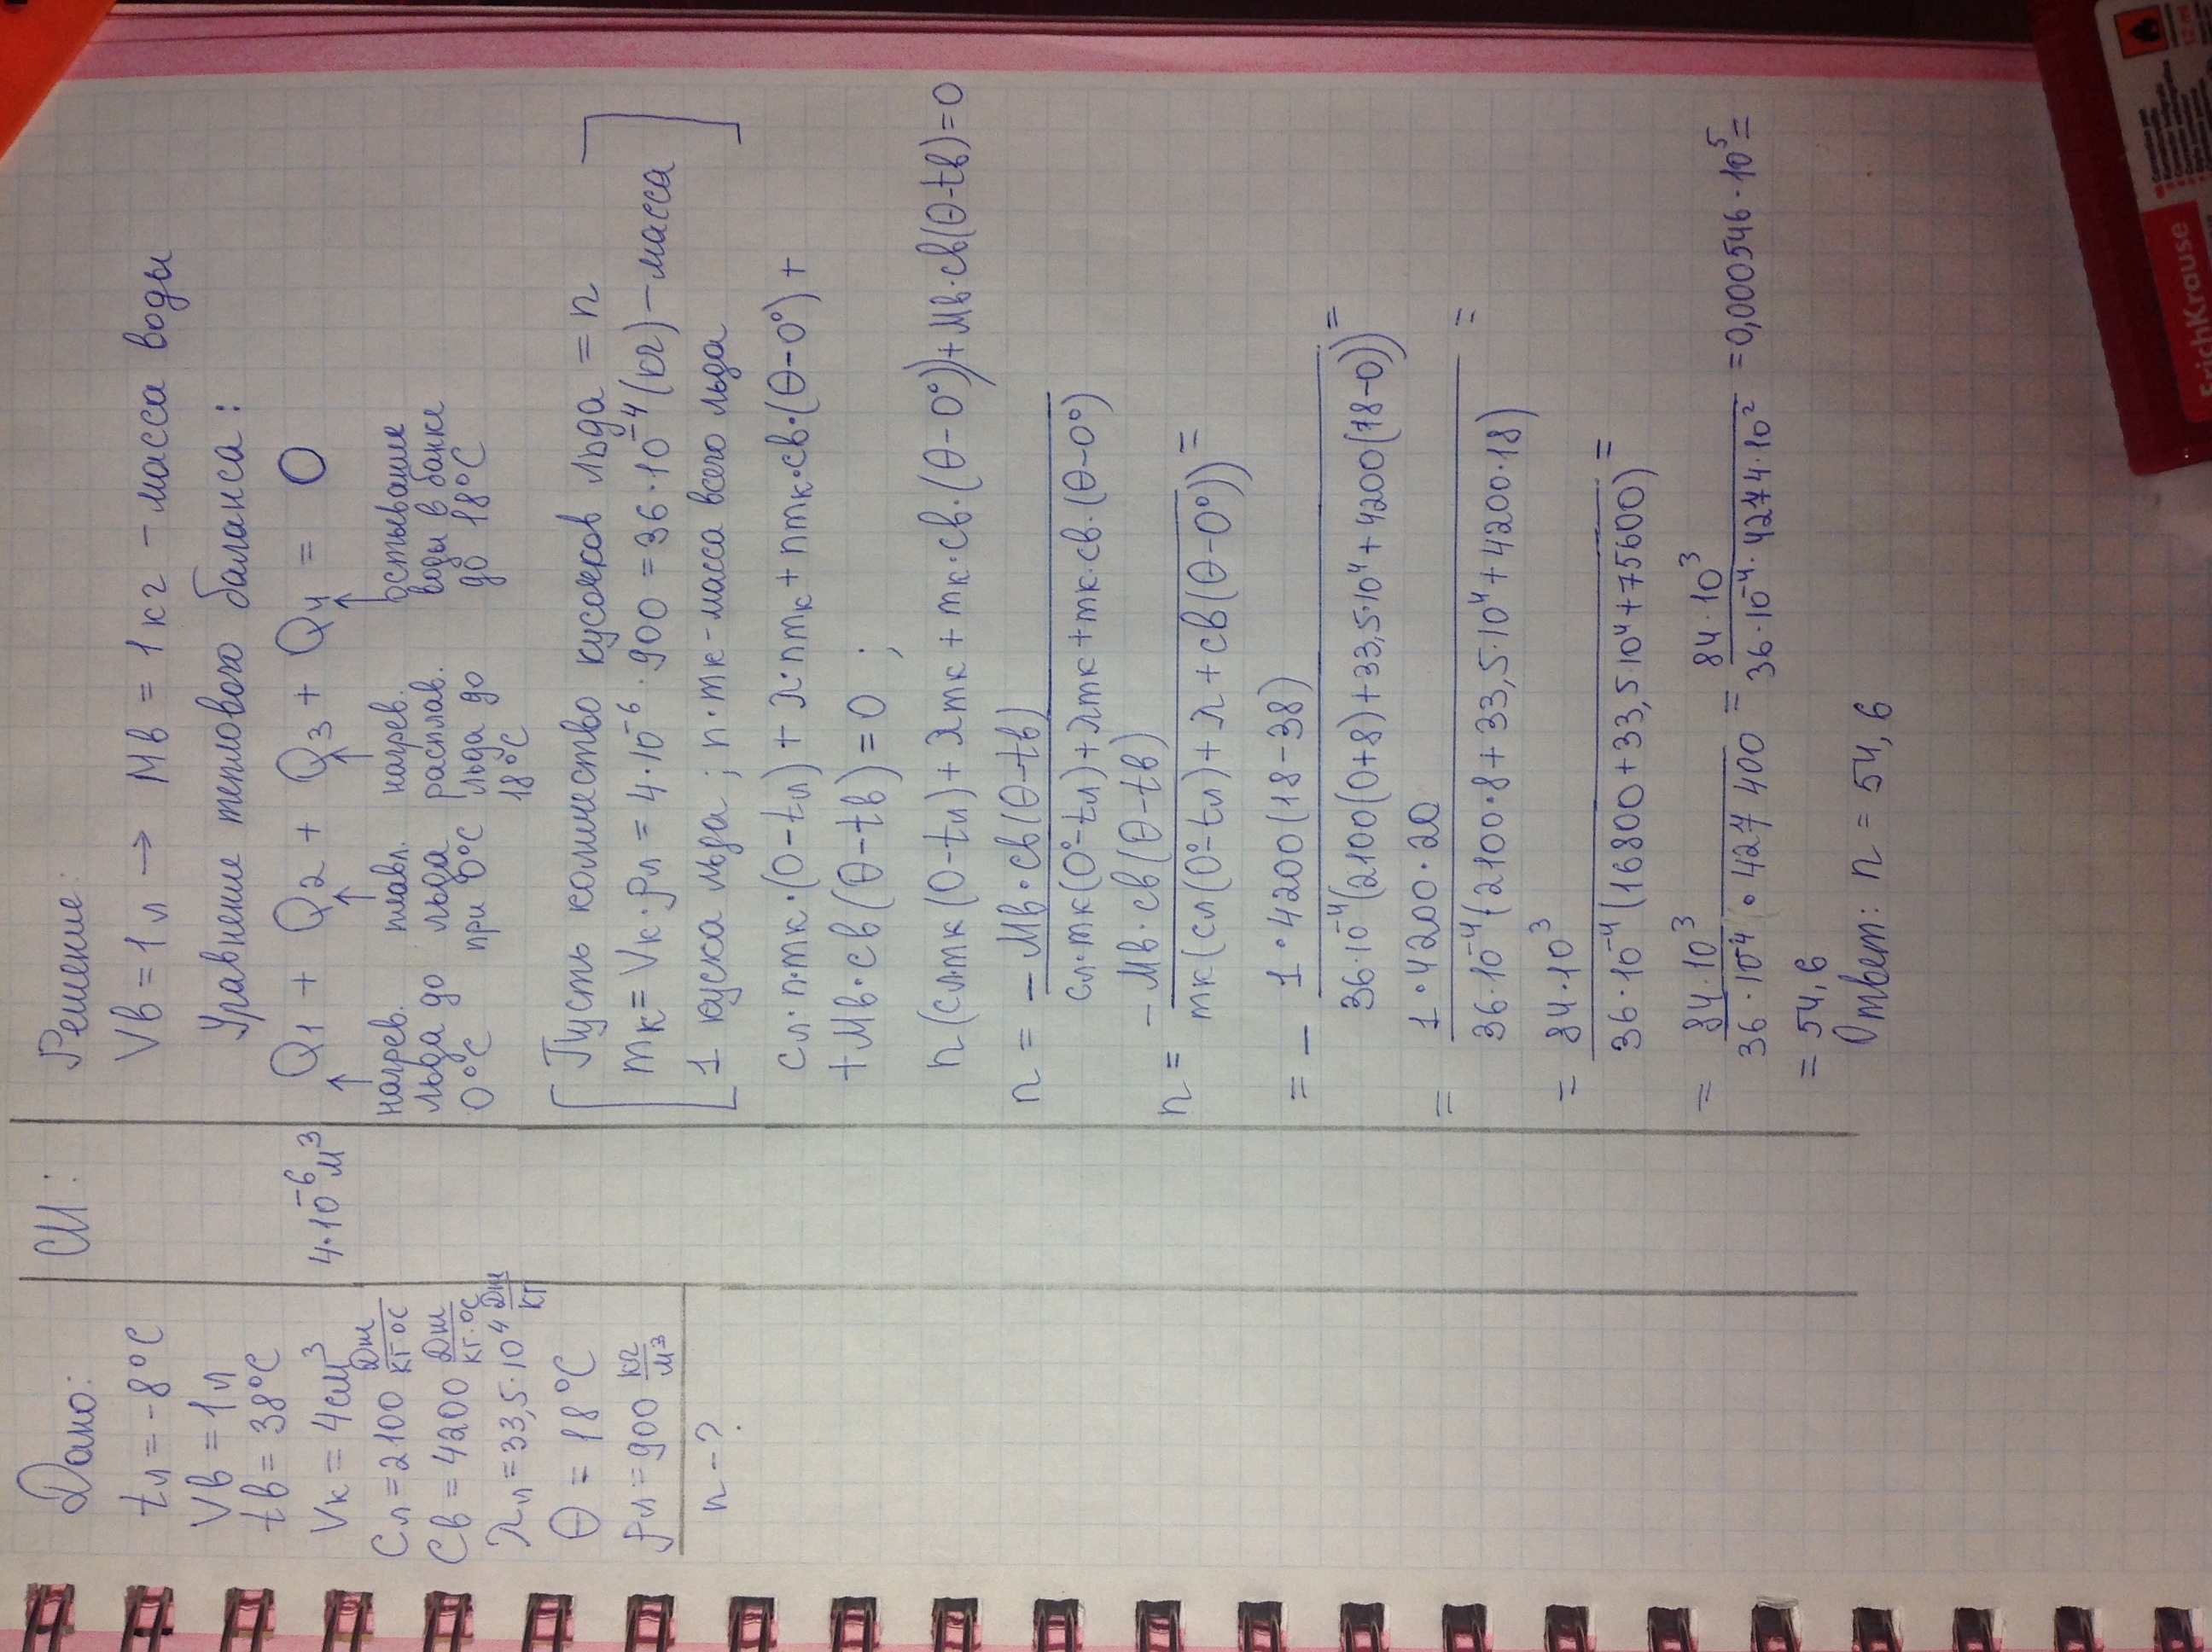 Дано:
tл = -8°C
Vв = 1 л
tв = 38°C
Vк = 4 см³
Cл = 2100 Дж/кг·°C
Cв = 4200 Дж/кг·°C
λл = 33,5·10⁴ Дж/кг
θ = 18°C
ρл = 900 кг/м³
n - ?
СИ:
4·10⁻⁶ м³
Решение:
Vв = 1 л → Mв = 1 кг - масса воды
Уравнение теплового баланса:
Q1 + Q2 + Q3 + Q4 = 0
↑ ↑ ↑ ↑
нагрев. льда до 0°C
плавл. льда при 0°C
нагрев. расплав. льда до 18°C
остывание воды в банке до 18°C
[Пусть количество кусочков льда = n
mк = Vк·ρл = 4·10⁻⁶·900 = 36·10⁻⁴ (кг) - масса
1 куска льда ; n·mк - масса всего льда]
cл·n·mк·(0-tл) + λ·nmк + nmк·cв·(θ-0°) +
+ Mв·cв(θ-tв) = 0 ;
n(cл·mк(0-tл) + λmк + mк·cв·(θ-0°)) + Mв·cв(θ-tв) = 0
n = - Mв·cв(θ-tв) / cл·mк(0°-tл) + λmк + mк·cв·(θ-0°)
n = -Mв·cв(θ-tв) / mк(cл(0°-tл) + λ + cв(θ-0°)) =
= - 1·4200(18-38) / 36·10⁻⁴(2100(0+8) + 33,5·10⁴ + 4200(18-0)) =
= 1·4200·20 / 36·10⁻⁴(2100·8 + 33,5·10⁴ + 4200·18) =
= 84·10³ / 36·10⁻⁴(16800 + 33,5·10⁴ + 75600) =
= 84·10³ / 36·10⁻⁴·427 400 = 84·10³ / 36·10⁻⁴·4274·10² = 0,000546·10⁵ =
= 54,6
Ответ: n = 54,6
ErichKrause